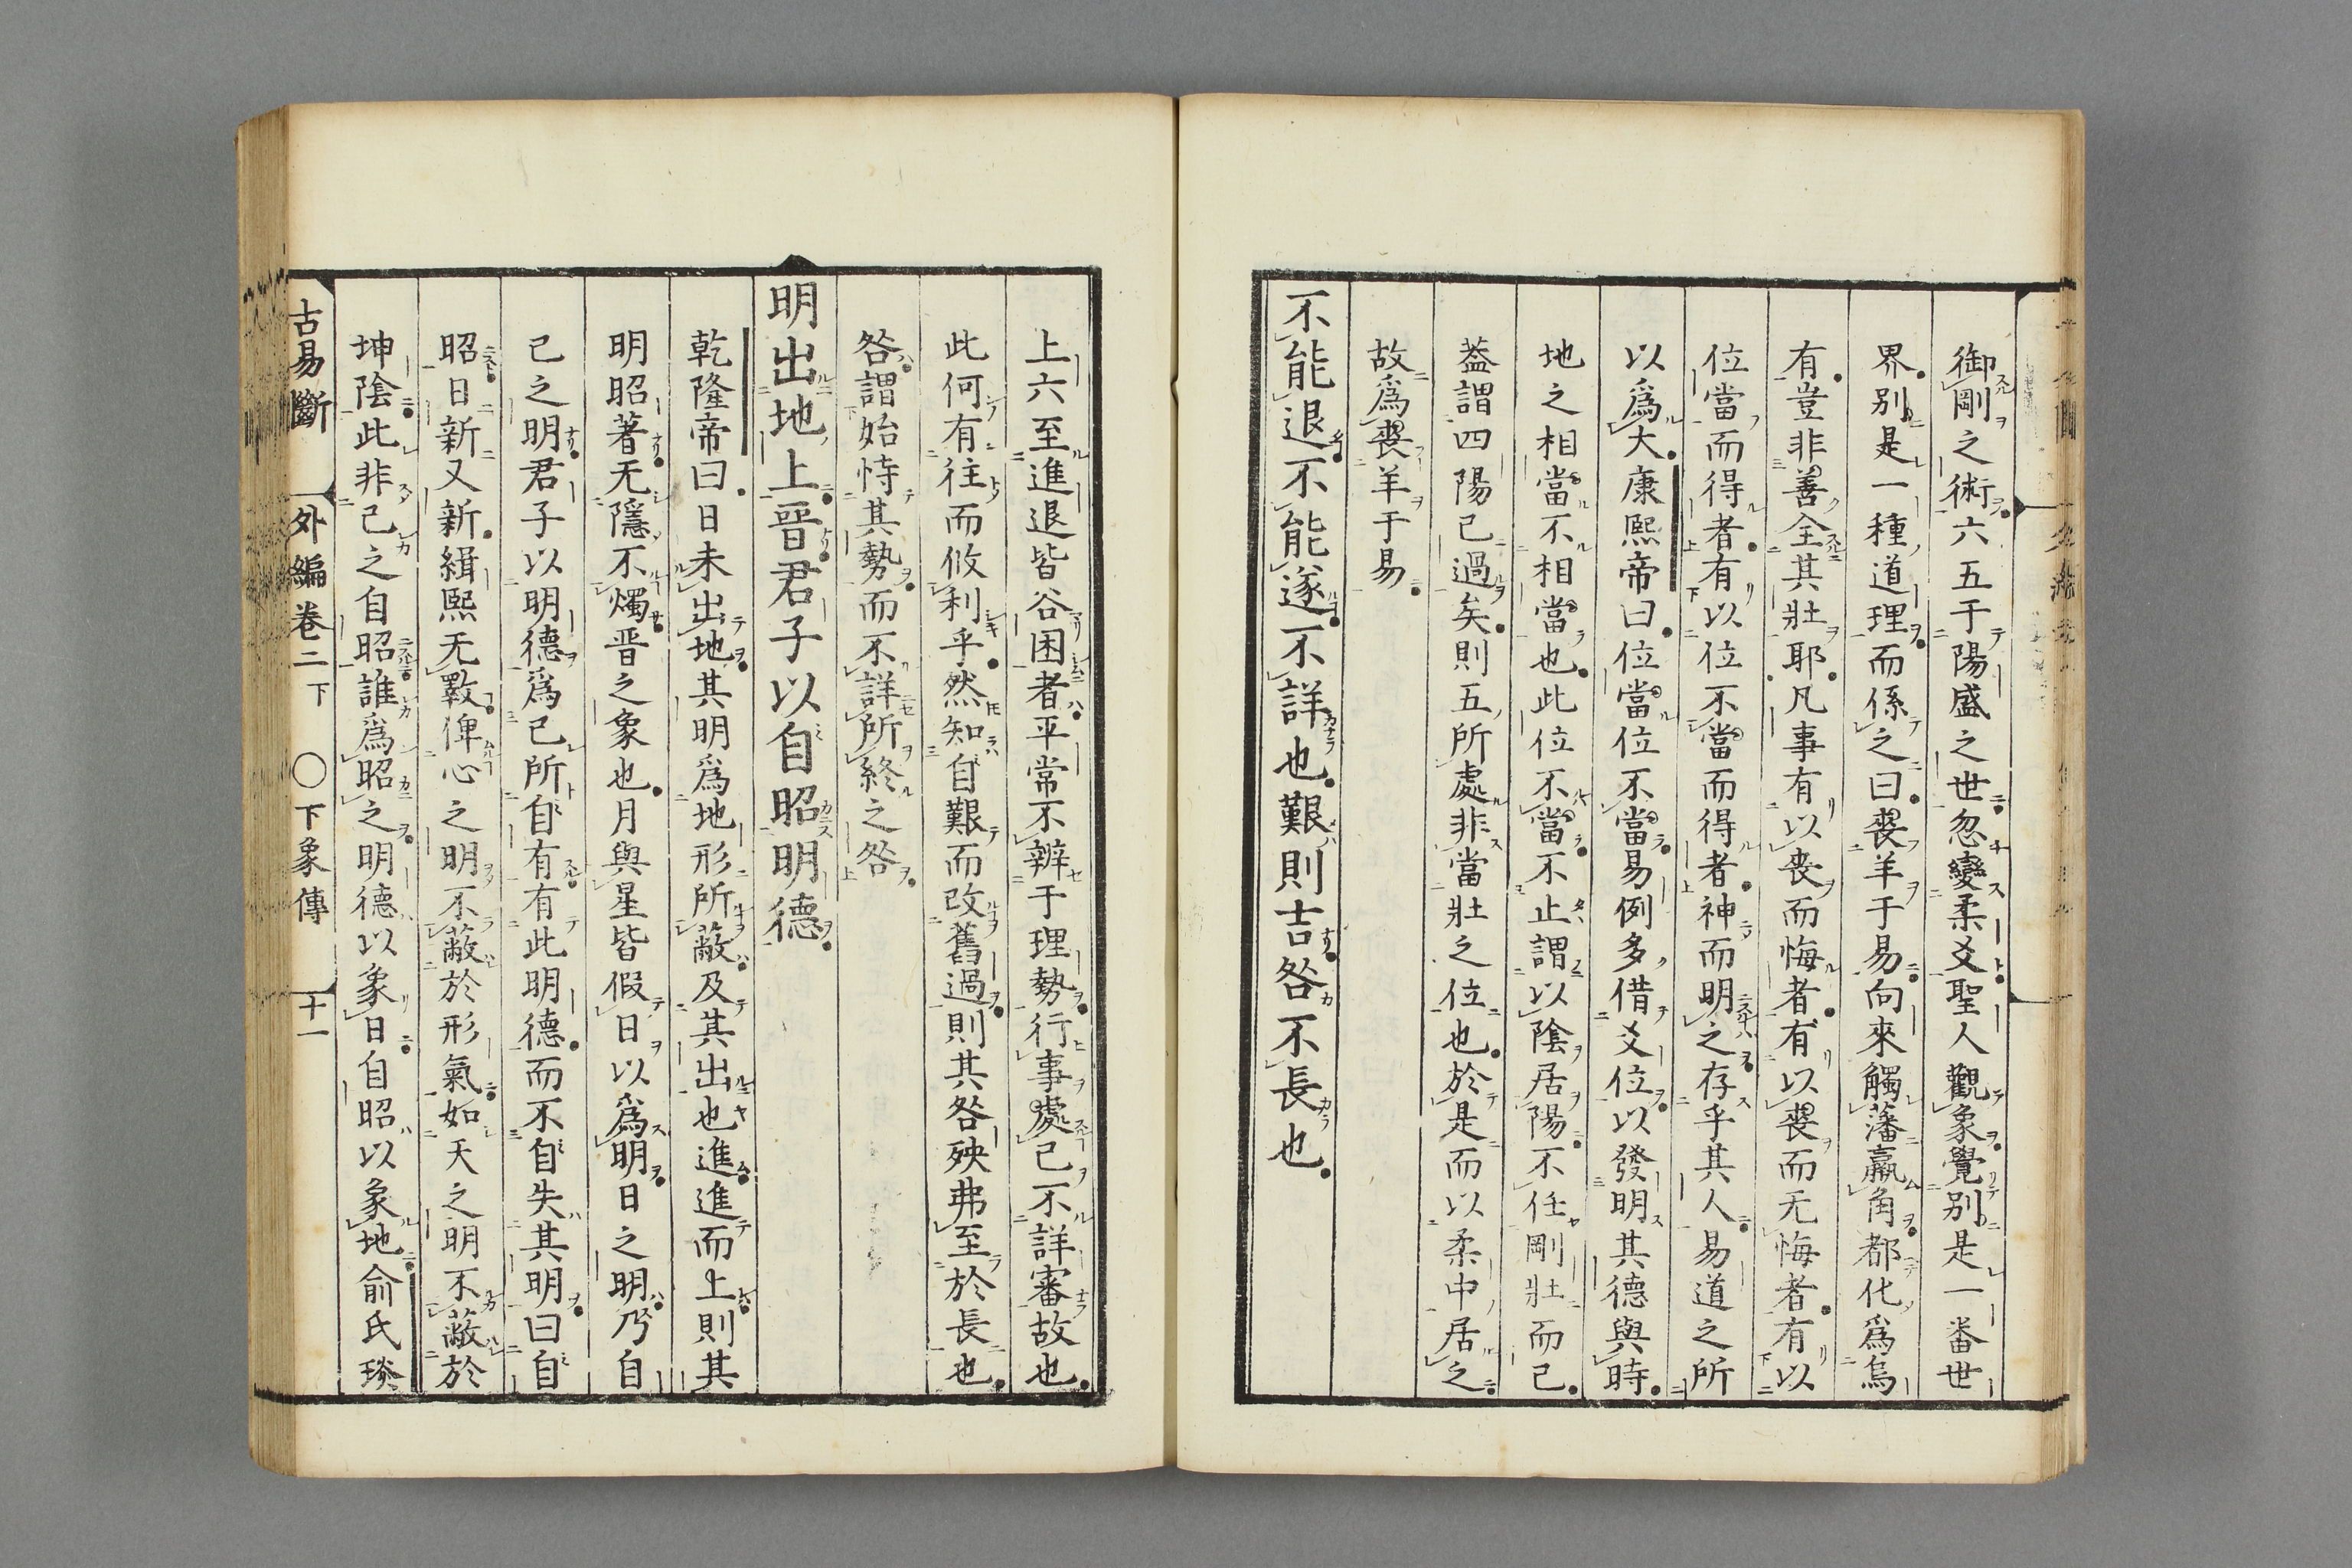 御剛之術六五于陽盛之世忽變柔爻聖人觀象覺別是一番世
界別是一種道理而係之曰喪羊于易向來觸藩羸角都化爲烏
有豈非善全其壯耶凡事有以喪而悔者有以喪而无悔者有以
位當而得者有以位不當而得者神而明之存乎其人易道之所
以爲大康熙帝曰位當位不當易例多借爻位以發明其德與時
地之相當不相當也此位不當不止謂以陰居陽不任剛壯而已
蓋謂四陽已過矣則五所處非當壯之位也於是而以柔中居之
故爲喪羊于易
不能退不能遂不詳也艱則吉咎不長也
上六至進退皆谷困者平常不辨于理勢行事處己不詳審故也
此何有往而攸利乎然知自艱而改舊過則其咎殃弗至於長也
咎謂始恃其勢而不詳所終之咎
明出地上晉君子以自昭明德
乾隆帝曰日未出地其明爲地形所蔽及其出也進進而上則其
明昭著无隱不燭晋之象也月與星皆假日以爲明日之明乃自
己之明君子以明德爲己所自有有此明德而不自失其明曰自
昭日新又新緝熙无斁俾心之明不蔽於形氣如天之明不蔽於
坤陰此非己之自昭誰爲昭之明德以象日自昭以象地俞氏琰
古易斷 外編卷二下 ○下象傳 十一